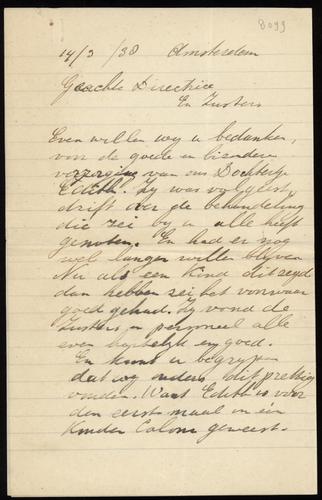 8099
14/3 /38 Amsterdam
Geachte Directrice
En Zusters
Even willen wy u bedanken,
voor de goede en bizondere
verzorging van ons Dochtertje
Edith. Zy was vol geest
drift over de behandeling
die zei by u alle heeft
genoten. En had er nog
wel langer willen blyven
Nu als een Kind dit zegd
dan hebben zei het voorwaar
goed gehad. Zy vond de
Zusters en personeel alle
even hartelyk en goed.
En kunt u begrypen
dat wy ouders dit prettig
vonden. Want Edith is voor
den eerste maal in een
Kinder Colonie geweest.